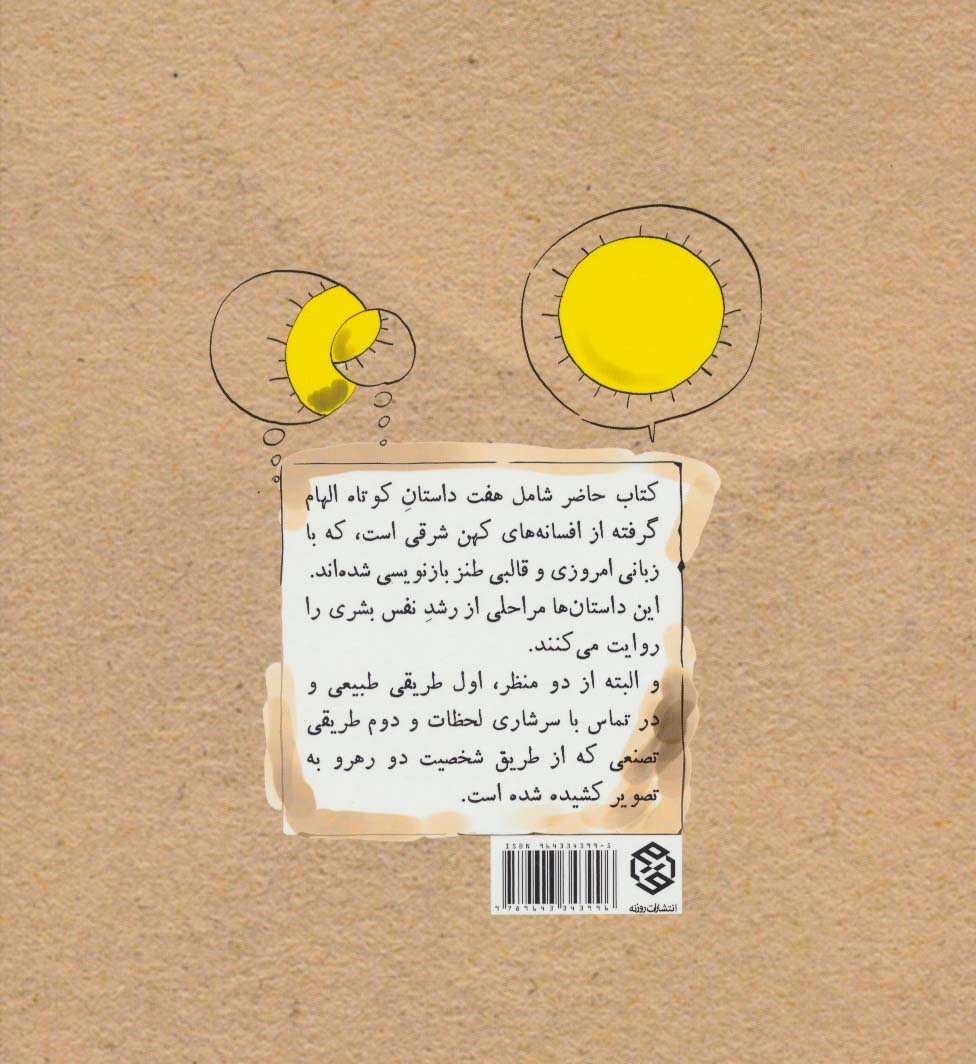 کتاب حاضر شامل هفت داستانِ کوتاه الهام
گرفته از افسانه‌های کهن شرقی است، که با
زبانی امروزی و قالبی طنز بازنویسی شده‌اند.
این داستان‌ها مراحلی از رشدِ نفس بشری را
روایت می‌کنند.
و البته از دو منظر، اول طریقی طبیعی و
در تماس با سرشاری لحظات و دوم طریقی
تصنعی که از طریق شخصیت دو رهرو به
تصویر کشیده شده است.
ISBN 964334399-5
9 789643 343996
انتشارات روزنه